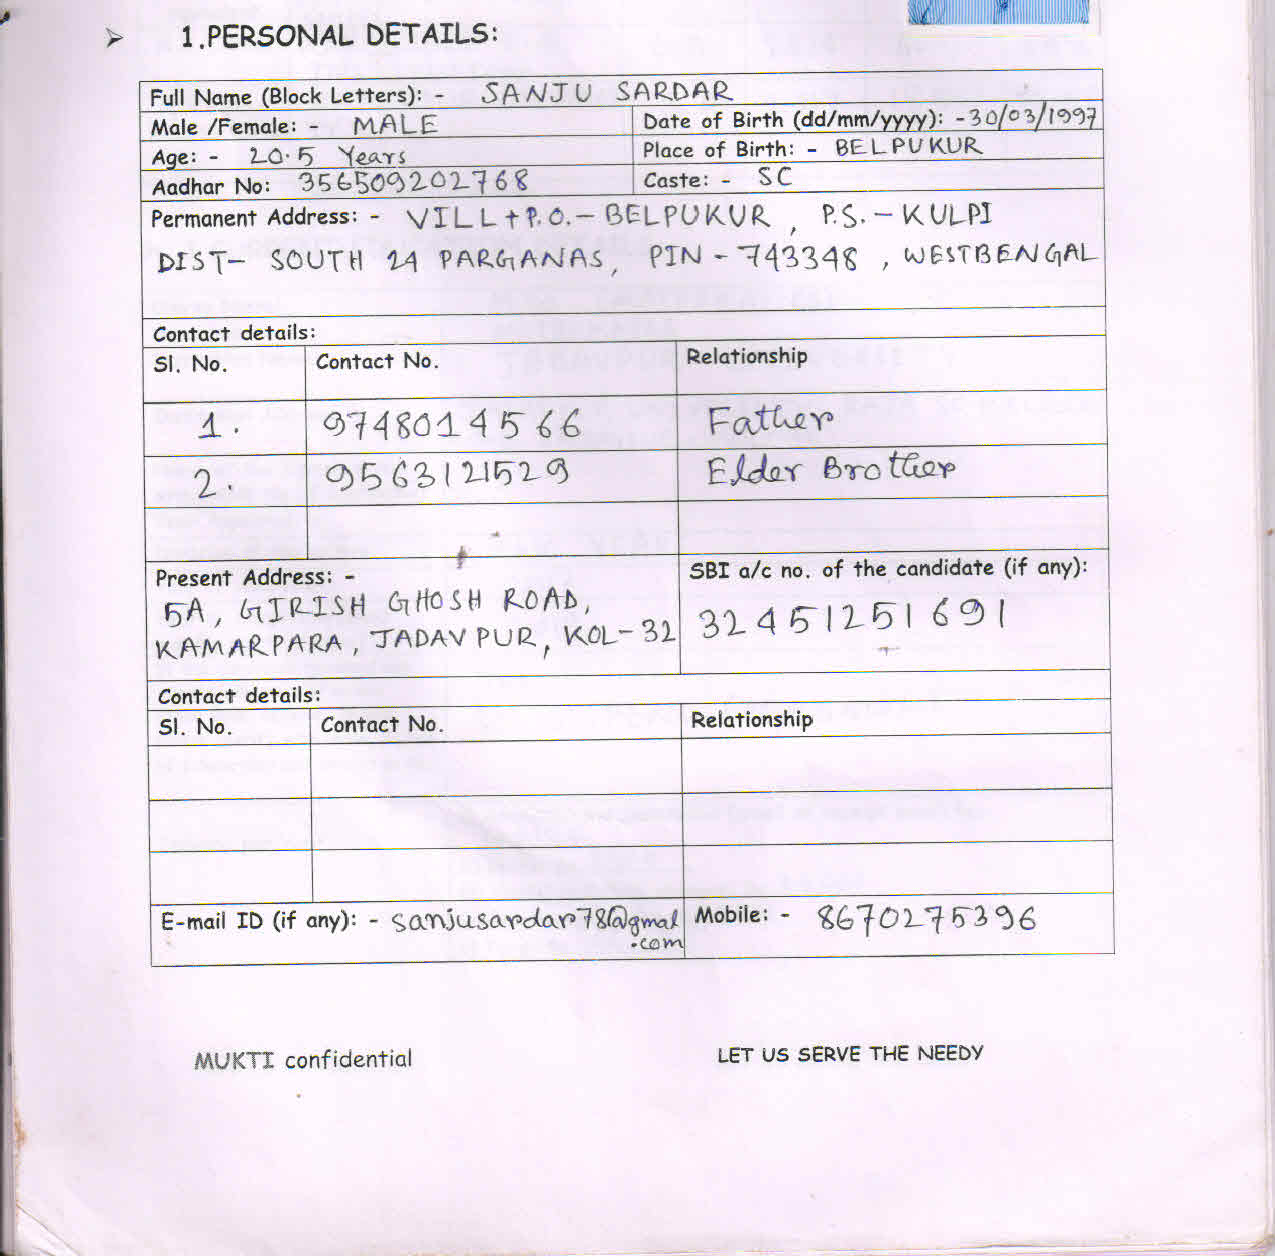 ➢ 1.PERSONAL DETAILS:
Full Name (Block Letters): - SANJU SARDAR
Male /Female: - MALE
Date of Birth (dd/mm/yyyy): - 30/03/1997
Age: - 20.5 Years
Place of Birth: - BELPUKUR
Aadhar No: 356509202768
Caste: - SC
Permanent Address: - VILL+P.O.- BELPUKUR, P.S.- KULPI
DIST- SOUTH 24 PARGANAS, PIN - 743348, WESTBENGAL
Contact details:
Sl. No. Contact No. Relationship
1. 9748014566 Father
2. 9563121529 Elder Brother
Present Address: -
5A, GIRISH GHOSH ROAD,
KAMARPARA, JADAVPUR, KOL-32
SBI a/c no. of the candidate (if any):
32451251691
Contact details:
Sl. No. Contact No. Relationship
E-mail ID (if any): - sanjusardar78@gmal
.com
Mobile: - 8670275396
MUKTI confidential
LET US SERVE THE NEEDY